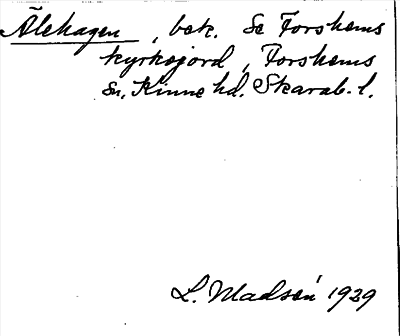 Ålehagen, bek. Se Forshems
kyrkojord, Forshems
sn. Kinne hd. Skarab. l.
L. Madsén 1929